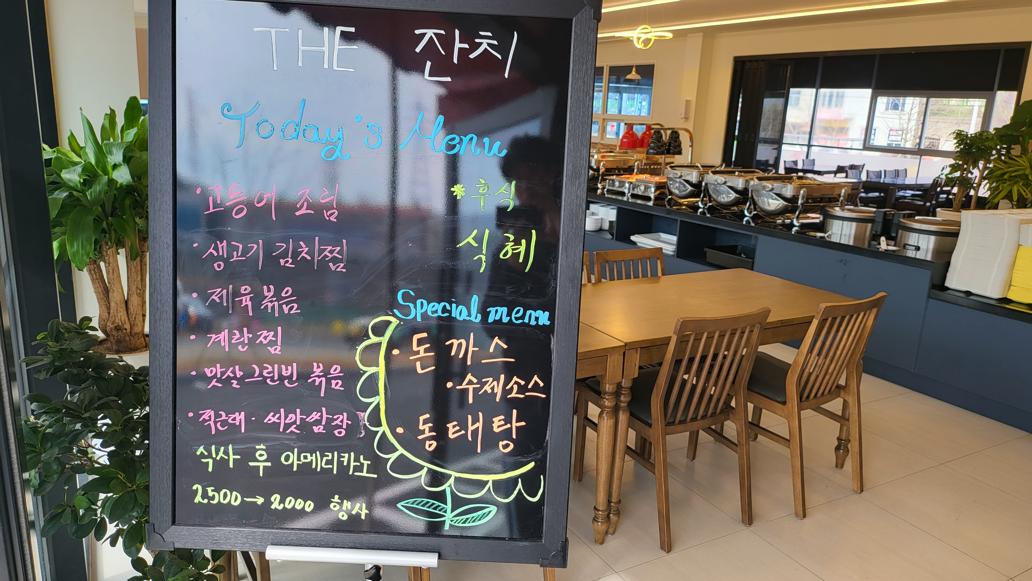 THE 잔치
Today's Menu
·고등어 조림
·생고기 김치찜
·제육볶음
·계란찜
·맛살그린빈 볶음
·적근대·씨앗쌈장
식사 후 아메리카노
2500→2000 행사
*후식
식혜
Special menu
·돈까스
·수제소스
·동태탕